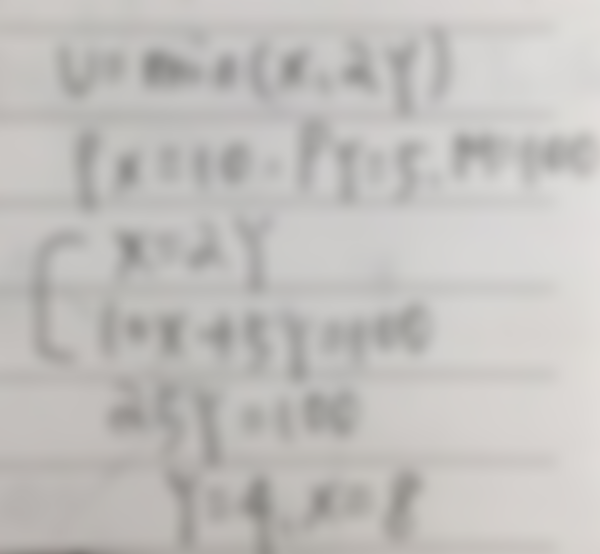 U=min(x,2Y)
Px=10.PY=5.M=100
x=2Y
10x+5Y=100
25Y=100
Y=4.x=8